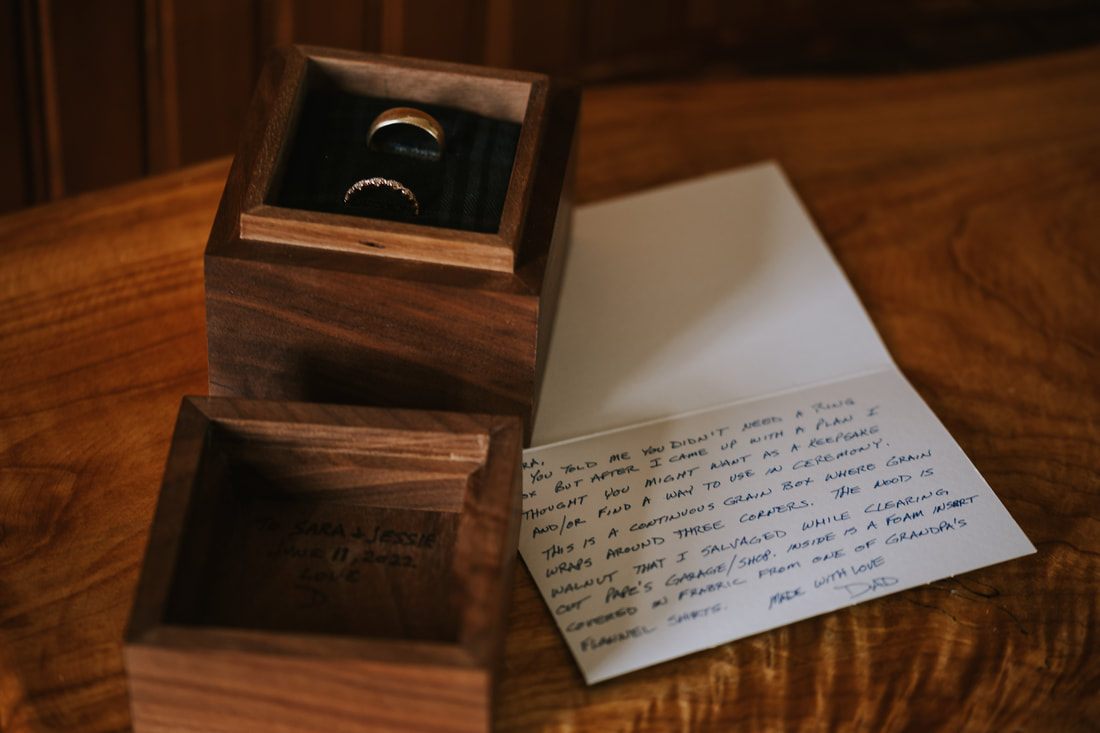 TO SARA & JESSIE
JUNE 11, 2022
LOVE
D
RA,
YOU TOLD ME YOU DIDN'T NEED A RING
OX BUT AFTER I CAME UP WITH A PLAN I
THOUGHT YOU MIGHT WANT AS A KEEPSAKE
AND/OR FIND A WAY TO USE IN CEREMONY.
THIS IS A CONTINUOUS GRAIN BOX WHERE GRAIN
WRAPS AROUND THREE CORNERS. THE WOOD IS
WALNUT THAT I SALVAGED WHILE CLEARING
OUT PAPE'S GARAGE/SHOP. INSIDE IS A FOAM INSERT
COVERED IN FRABRIC FROM ONE OF GRANDPA'S
FLANNEL SHIRTS. MADE WITH LOVE
DAD